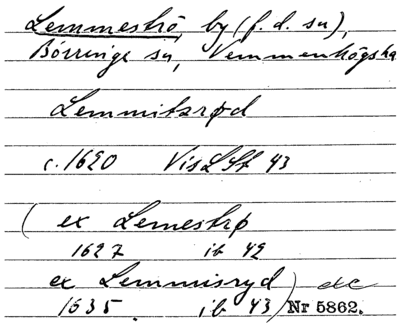 Lemmeströ, by (f. d. sn),
Börringe sn, Vemmenhögsha
Lemmitsrød
c. 1620 VisLSt 43
( ex Lemestrø
1627 ib 42
ex Lemmisryd ) etc
1635. ib 43 Nr 5862.